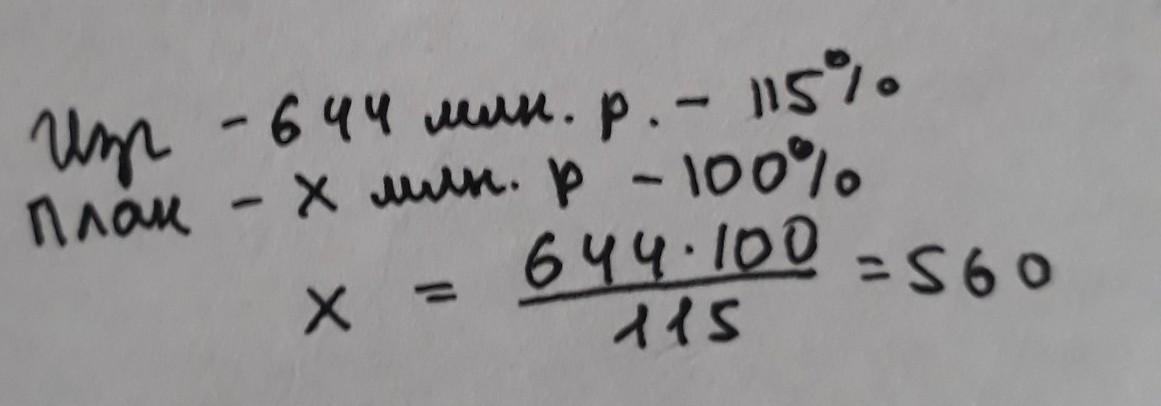 Изг - 644 млн. р. - 115%
План - х млн. р - 100%
х = 644·100 / 115 = 560